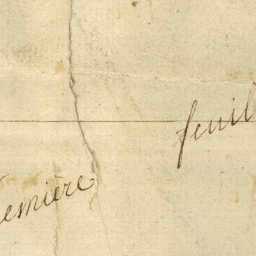 emière feuil